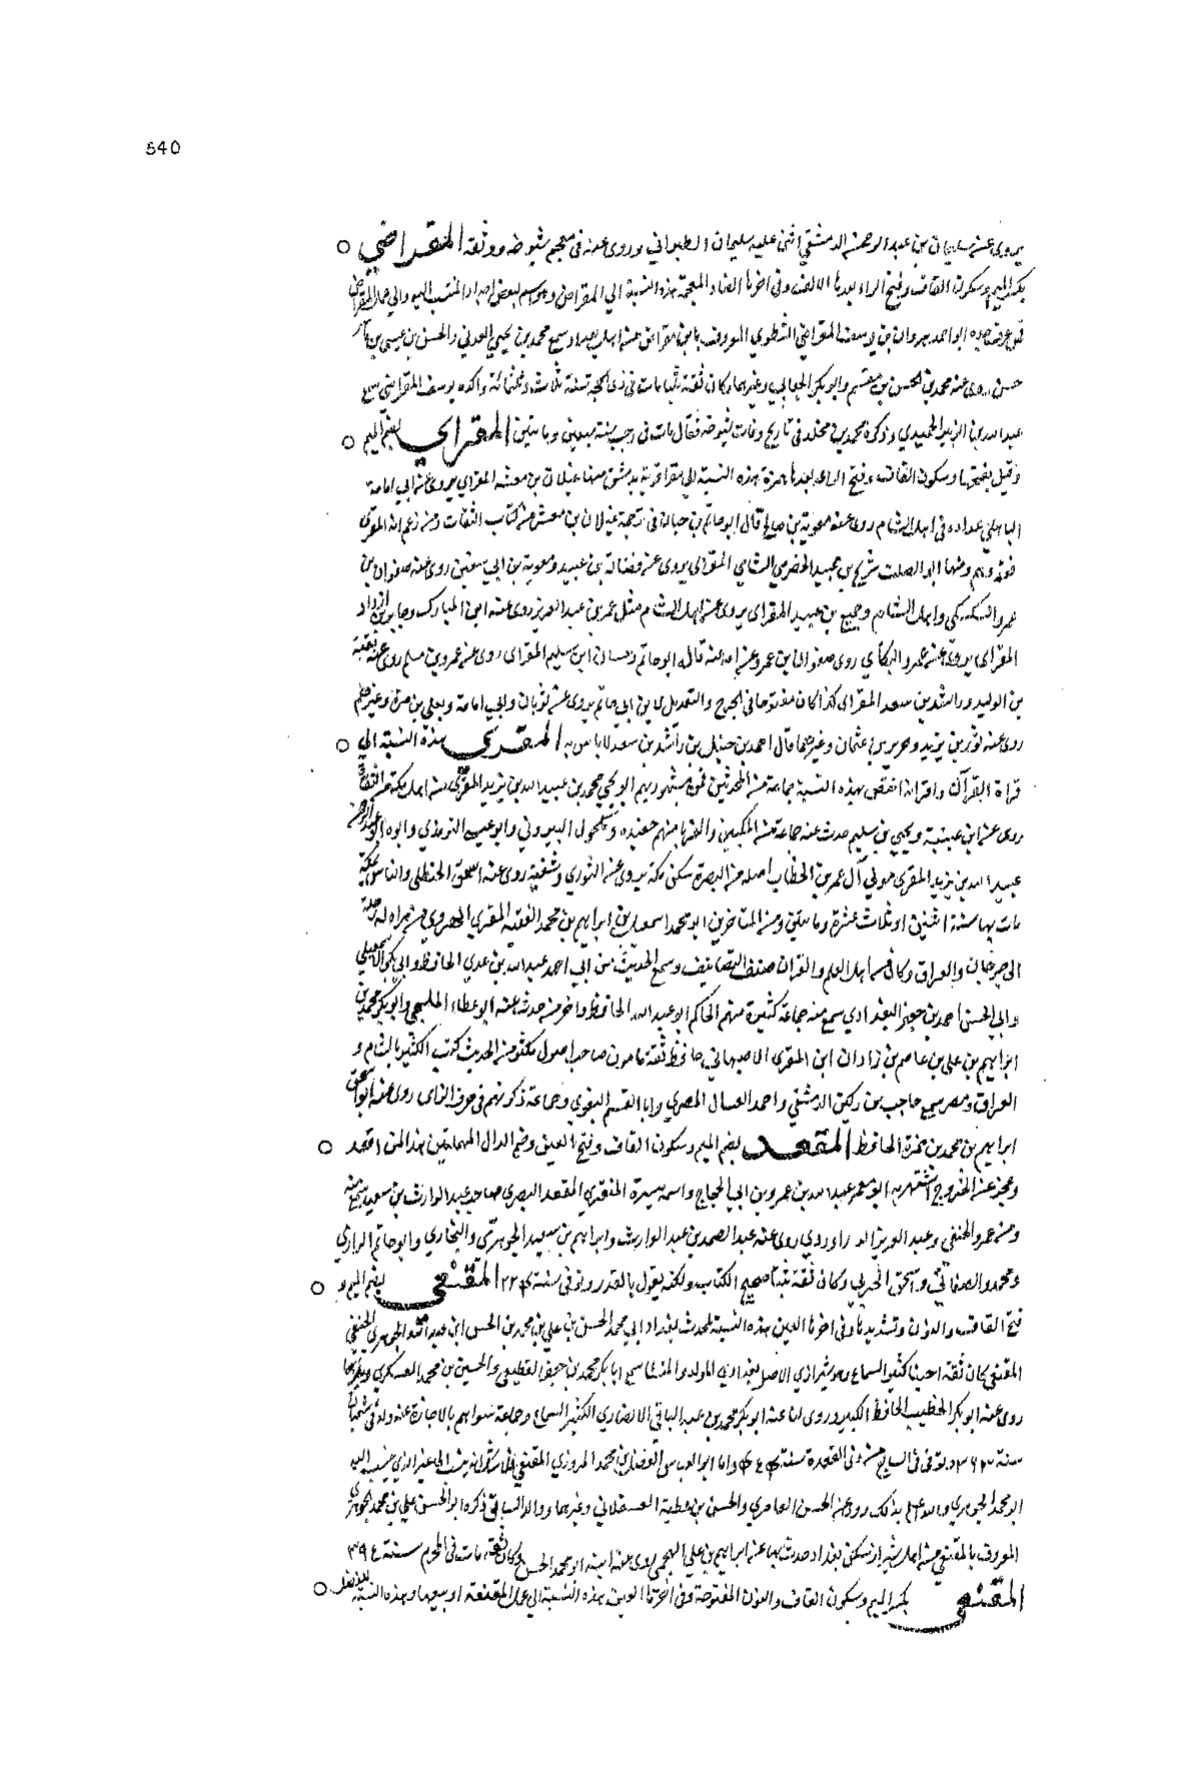 540
يروى عن سليمان بن عبد الرحمن الدمشقي اثنى عليه سليمان الطبراني وروى عنه في معجم شيوخه ووثقه المقراضي
بكسر الميم وسكون القاف وفتح الراء بعدها الالف وفي اخرها الضاد المعجمة هذه النسبة الي المقراض وهو اسم لبعض اجداد المنتسب اليه والي عمل المقراض
ابو احمد هرون بن يوسف المقراضي الشطوي المعروف بابن مقراض من اهل بغداد سمع محمد بن يحيى العدني والحسن بن عيسى بن
روى عنه محمد بن الحسن بن مقسم وابو بكر الجعابي وغيرهما وكان ثقة ثبتا مات في ذي الحجة سنة ثلاث وثلثمائة والده يوسف المقراضي سمع
عبد الله بن الزبير الحميدي وذكره محمد بن مخلد في تاريخ وفات شيوخه فقال مات في رجب سنة سبعين وماتين المقراي بضم الميم
وقيل بفتحها وسكون القاف وفتح الراء بعدها همزة هذه النسبة الى مقرا قرية بدمشق منها غيلان بن معشر المقراي يروى عن ابي امامة
الباهلي عداده في اهل الشام روى عنه معوية بن صالح قال ابو حاتم بن حبان في ترجمة غيلان بن معشر من كتاب الثقات ومن زعم انه المقري
فقد وهم ومنها ابو الصلت شريح بن عبيد الحضرمي الشامي المقراى يروى عن فضالة بن عبيد ومعوية بن ابي سفين روى عنه صفوان بن
عمرو السكسكي واهل الشام وجميع بن عبيد المقراى يروى عن اهل الشام مثل عمر بن عبد العزيز روى عنه ابن المبارك وجابر بن ازداد
المقراى يروى عن عمرو البكاي روى صفوان بن عمرو عن امه عنه قاله ابو حاتم وغسان بن سليم المقراى روى عن عمرو بن مسلم روى عنه بقية
بن الوليد وراشد بن سعد المقراى كذا كان مفتوحا في الجرح والتعديل لابن ابي حاتم يروى عن ثوبان وابي امامة ويعلى بن مرة وغيرهم
روى عنه ثور بن يزيد وحريز بن عثمان وغيرهما قال احمد بن حنبل بن راشد بن سعد لاباس به المقري هذه النسبة الي
قراة القرآن واقرائه اختص بهذه النسبة جماعة من المحدثين فمن مشهوريهم ابو يحيى محمد بن عبد الله بن يزيد المقري من اهل مكة من الثقات
روى عن ابن عيينة ويحيى بن سليم حدث عنه جماعة من المكيين والغربا منهم حفيده ومكحول البيروتي وابو عيسى الترمذي وابوه ابو عبد الرحمن
عبد الله بن يزيد المقري مولي آل عمر بن الخطاب اصله من البصرة سكن مكة يروى عن الثوري وشعبة روى عنه اسحق الحنظلي والناس بمكة
مات بها سنة اثنين او ثلاث عشرة وماتين ومن المتاخرين ابو محمد اسمعيل بن ابراهيم بن محمد الفقيه المقري الهروي من هراه له رحلة
الى جرجان والعراق وكان من اهل العلم والقران صنف التصانيف وسمع الحديث من ابي احمد عبد الله بن عدي الحافظ وابي بكر الاسمعيلي
وابي الحسن احمد بن جعفر البغدادي سمع منه جماعة كثيرة منهم الحاكم ابو عبد الله الحافظ واخر من حدث عنه ابو عطاء المليحي وابو بكر محمد بن
ابراهيم بن علي بن عاصم بن زاذان ابن المقرى الاصبهاني حافظ ثقة مامون صاحب اصول مكثر من الحديث كتب الكثير بالشام و
العراق ومصر سمع حاجب بن ركين الدمشقي واحمد العسال المصري وابا القسم البغوي وجماعة ذكرتهم في حرف الزاى روى عنه ابو اسحق
ابراهيم بن محمد بن حمزة الحافظ المقعد بضم الميم وسكون القاف وفتح العين وضم الدال المهملتين هذا لمن اقعد
وعجز عن الخروج اشتهر به ابو معمر عبد الله بن عمرو بن ابي الحجاج واسمه ميسرة المنقري المقعد البصري صاحب عبد الوارث بن سعيد سمع منه
ومن عمرو الحنفي وعبد العزيز الدراوردي روى عنه عبد الصمد بن عبد الوارث وابراهيم بن سعيد الجوهري والبخاري وابو حاتم الرازي
ومحمد الصغاني واسحق الحربي وكان ثقة ثبتا صحيح الكتاب ولكنه يقول بالقدر وتوفي سنة ٢٢٤ المقنعي بضم الميم و
فتح القاف والنون وتشديدها وفي اخرها العين هذه النسبة لمحدث بغداد ابي محمد الحسن بن علي بن محمد بن الحسن ابن عبد الله الجوهري
المقنعي كان ثقة امينا كثير السماع وهو شيرازي الاصل بغدادي المولد والمنشا سمع ابا بكر محمد بن جعفر القطيعي والحسين بن محمد العسكري وغيرهما
روى عنه ابو بكر الخطيب الحافظ الكبير وروى لنا عنه ابو بكر محمد بن عبد الباقي الانصاري الكثير السماع وجماعة سواهم بالاجازة عنه ولد في شعبان
سنة ٣٦٣ وتوفي في السابع من ذي القعدة سنة ٤٥٤ واما ابو العباس الفضل بن محمد المروزي المقنعي
ابو محمد الجوهري والله اعلم بذلك روى عن الحسن العامري والحسن بن عطية العسقلاني وغيرهما ووالد السابق ذكره ابو الحسن علي بن محمد الجوهري
المعروف بالمقنعي من اهل شيراز سكن بغداد وحدث بها عن ابراهيم بن علي الهجيمي روى عنه ابنه ابو محمد الحسن وكان ثقة مات في المحرم سنة ٣٩٤
المقنعي بكسر الميم وسكون القاف والنون المفتوحة وفي اخرها العين هذه النسبة الي عمل المقنعة او بيعها وهذه النسبة